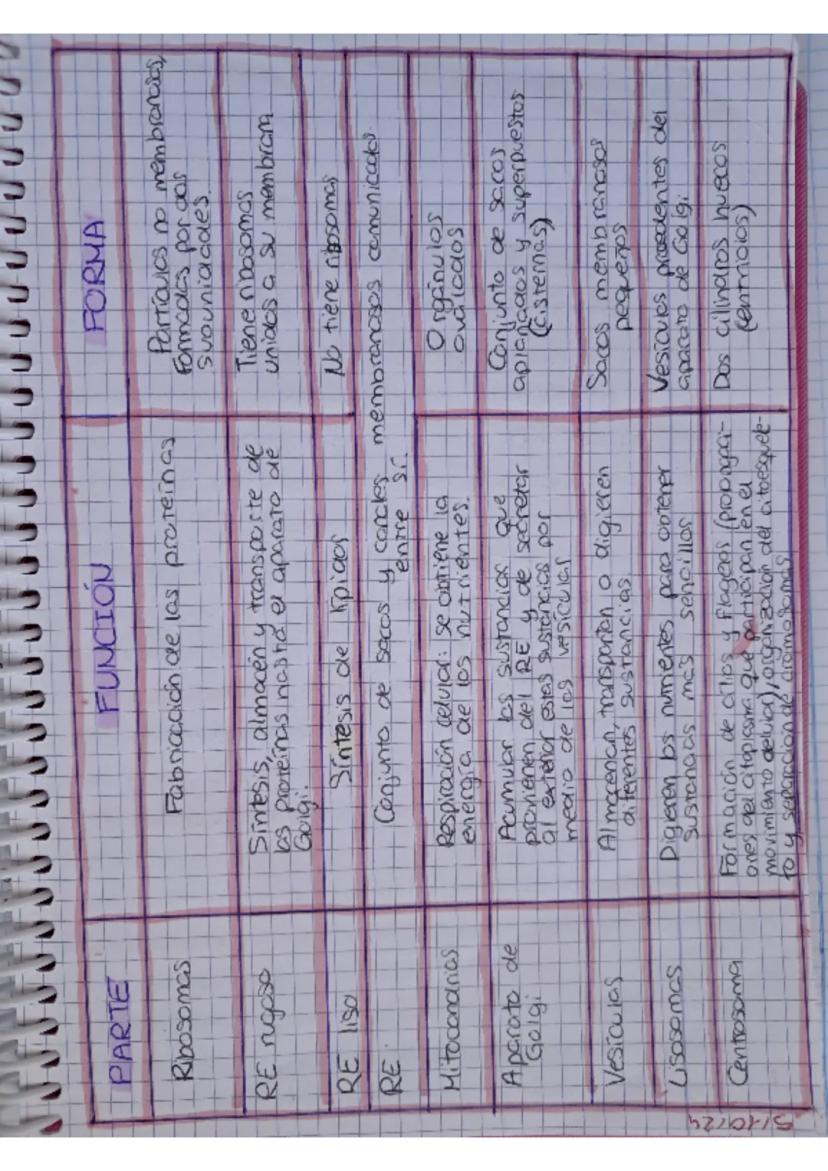 PARTE FUNCIÓN FORMA
Ribosomas
Fabricación de las proteínas
Partículas no membranosas,
formadas por dos
subunidades.
RE rugoso
Síntesis, almacén y transporte de
las proteínas hasta el aparato de
Golgi.
Tiene ribosomas
unidos a su membrana
RE liso
Síntesis de lípidos
No tiene ribosomas
RE.
Conjunto de sacos y canales membranosos comunicados
entre sí.
Mitocondrias
Respiración celular: se obtiene la
energía de los nutrientes.
Orgánulos
ovalados
Aparato de
Golgi
Acumular las sustancias que
provienen del RE y de secretar
al exterior estas sustancias por
medio de las vesículas
Conjunto de sacos
aplanados y superpuestos
(cisternas)
Vesículas
Almacenan, transportan o digieren
diferentes sustancias.
Sacos membranosos
pequeños
Lisosomas
Digieren los nutrientes para obtener
sustancias más sencillas
Vesículas procedentes del
aparato de Golgi
Centrosoma
Formación de cilios y flagelos (prolongaci-
ones del citoplasma que participan en el
movimiento celular), organización del citoesquele-
to y separación de cromosomas
Dos cilindros huecos
(centriolos)
5/10/24